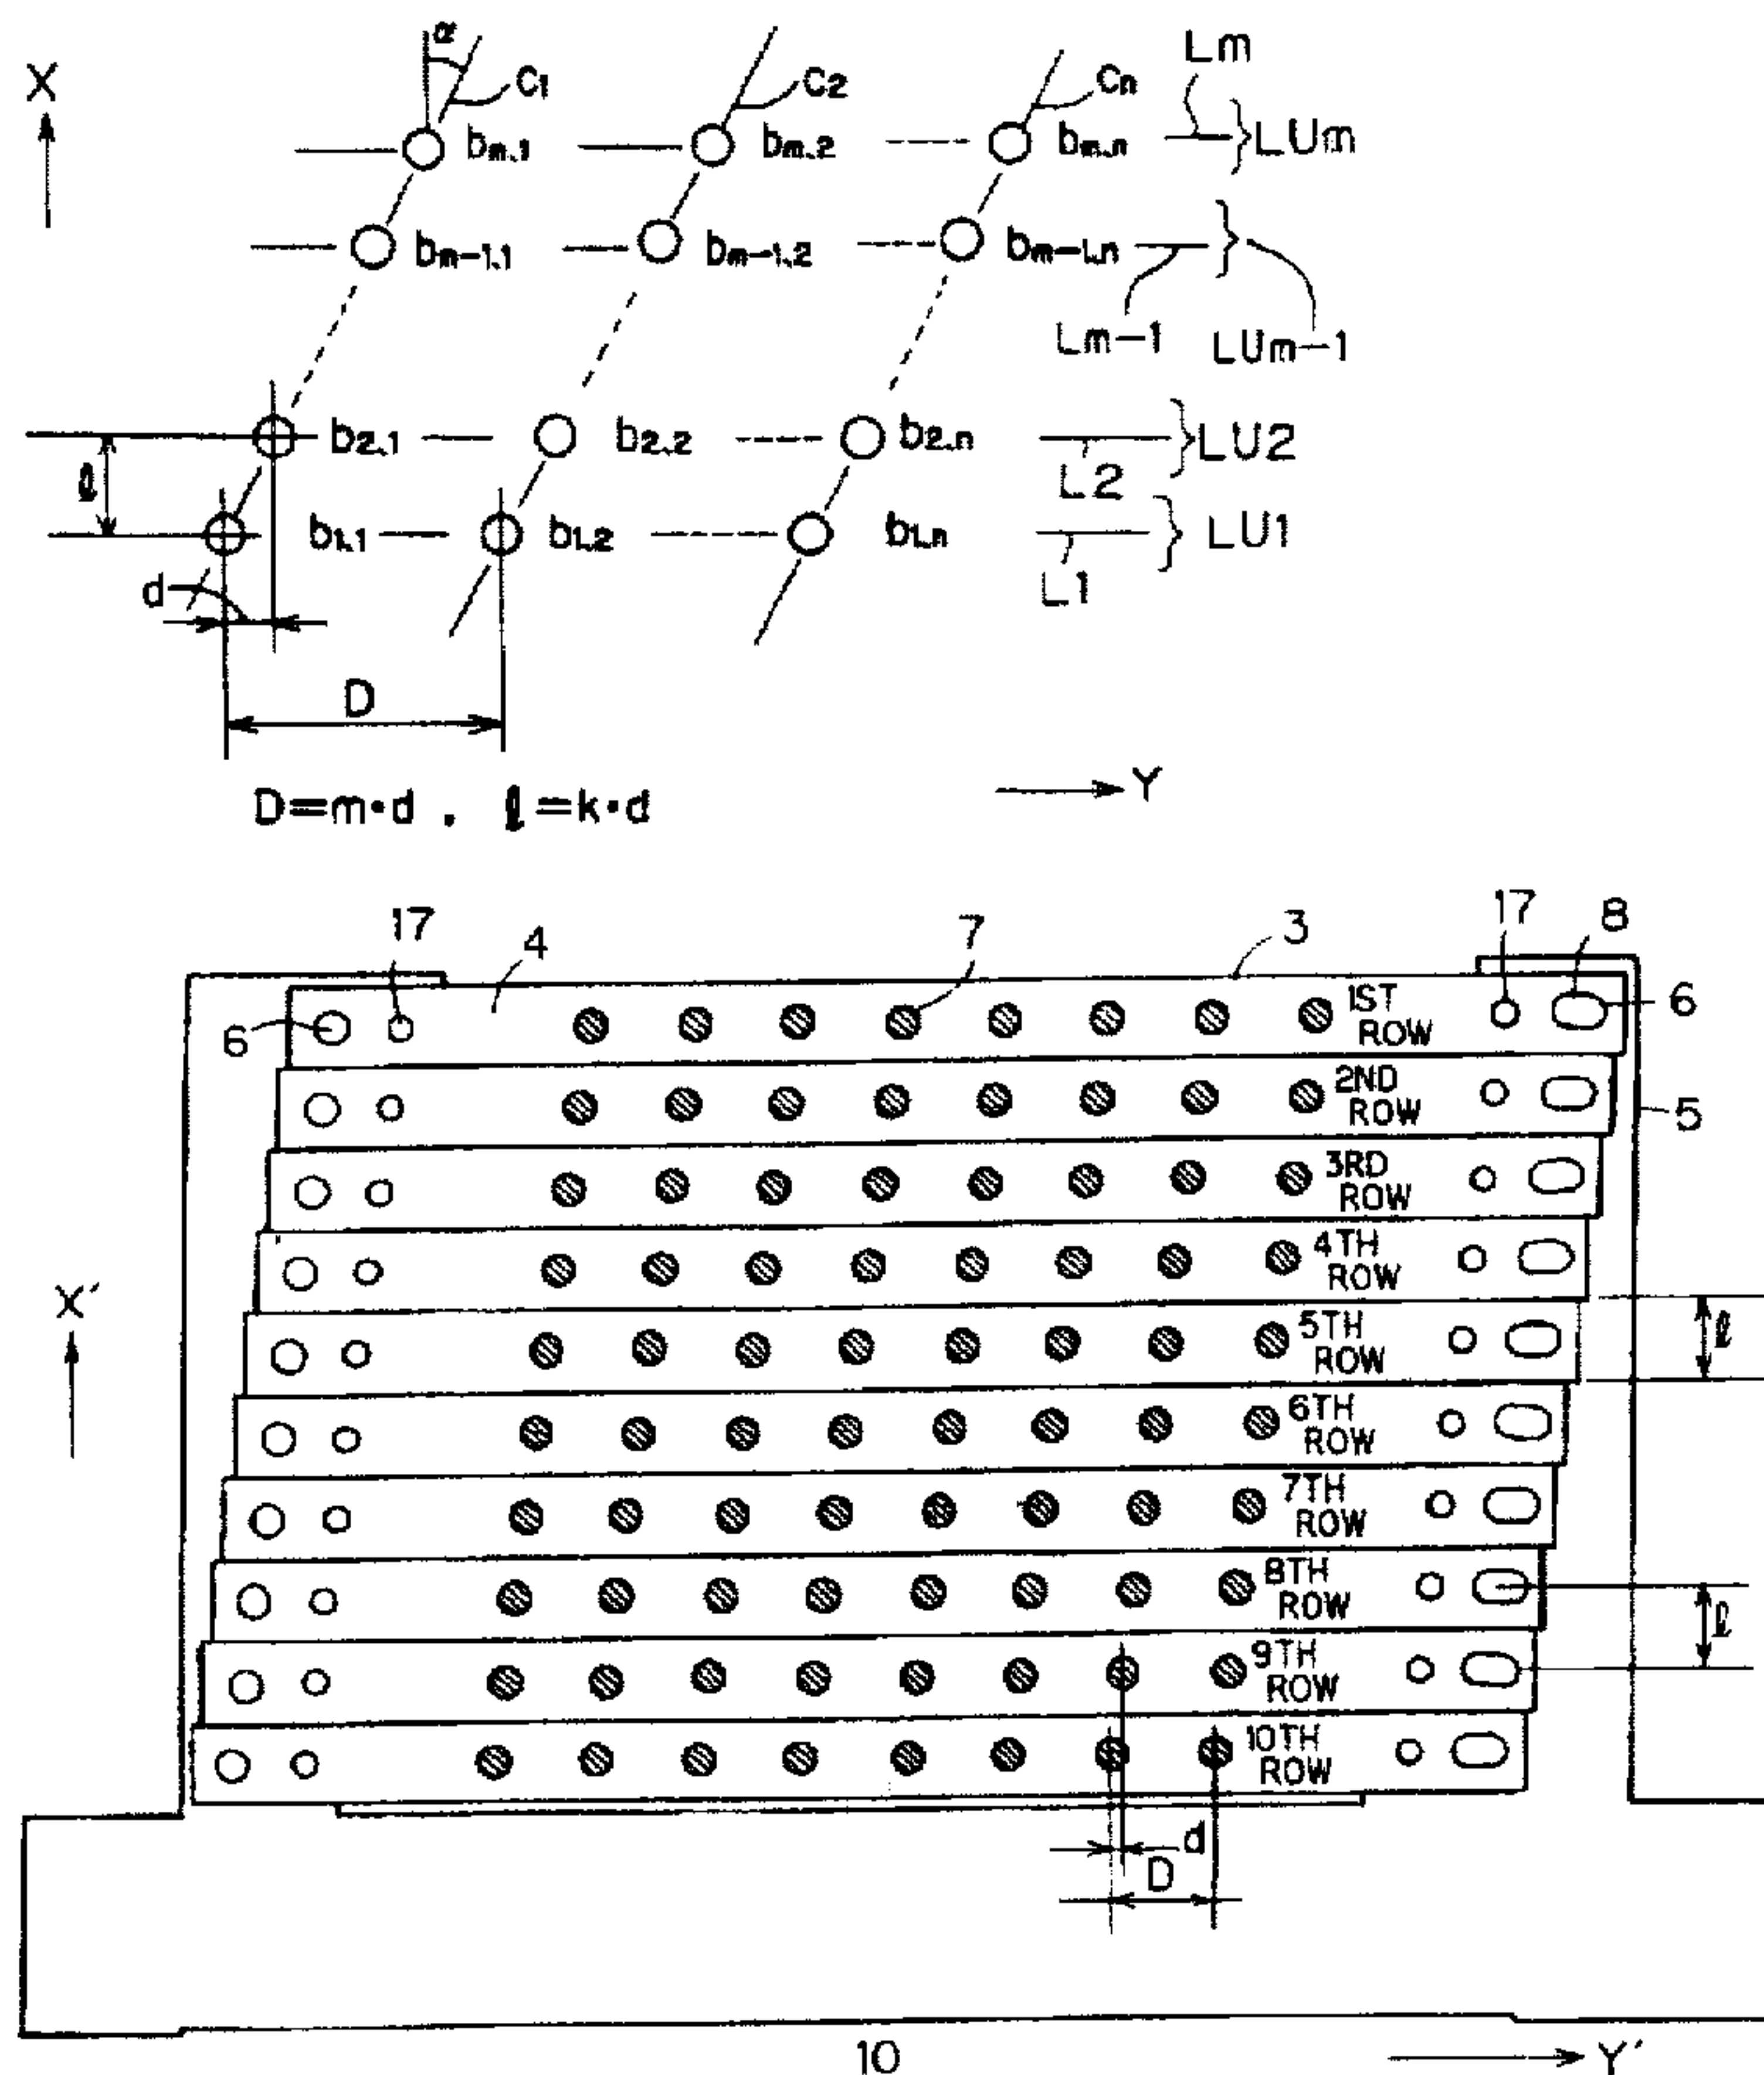 α
X C1 C2 Cn Lm
bm.1 bm.2 bm.n LUm
bm-1.1 bm-1.2 bm-1.n
Lm-1 LUm-1
b2.1 b2.2 b2.n LU2
ℓ L2
b1.1 b1.2 b1.n LU1
d L1
D
Y
D=m•d . ℓ=k•d
17 4 7 3 17 8
6 1ST ROW 6
2ND ROW 5
3RD ROW
4TH ROW
X′
5TH ROW ℓ
6TH ROW
7TH ROW
8TH ROW ℓ
9TH ROW
10TH ROW
d
D
10 Y′